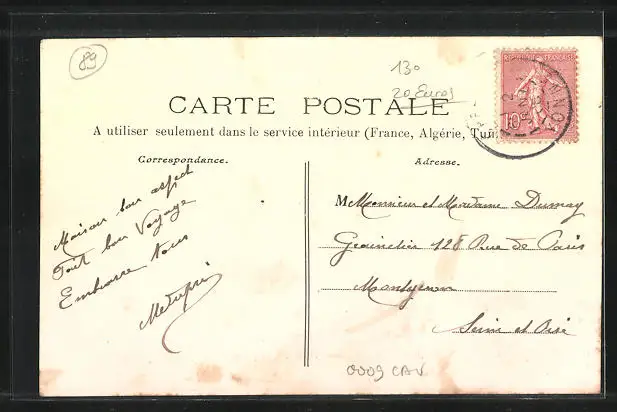 89
130
20 Euros
CARTE POSTALE
A utiliser seulement dans le service intérieur (France, Algérie, Tun
RÉPUBLIQUE FRANÇAISE
10c
Correspondance.
Maison bon aspect
Fait bon Voyage
Embrasse tous
Adresse.
M Monsieur et Madame Dumay
Grainetier 128 Rue de Paris
Montgeron
Seine et Oise
0009 CAV